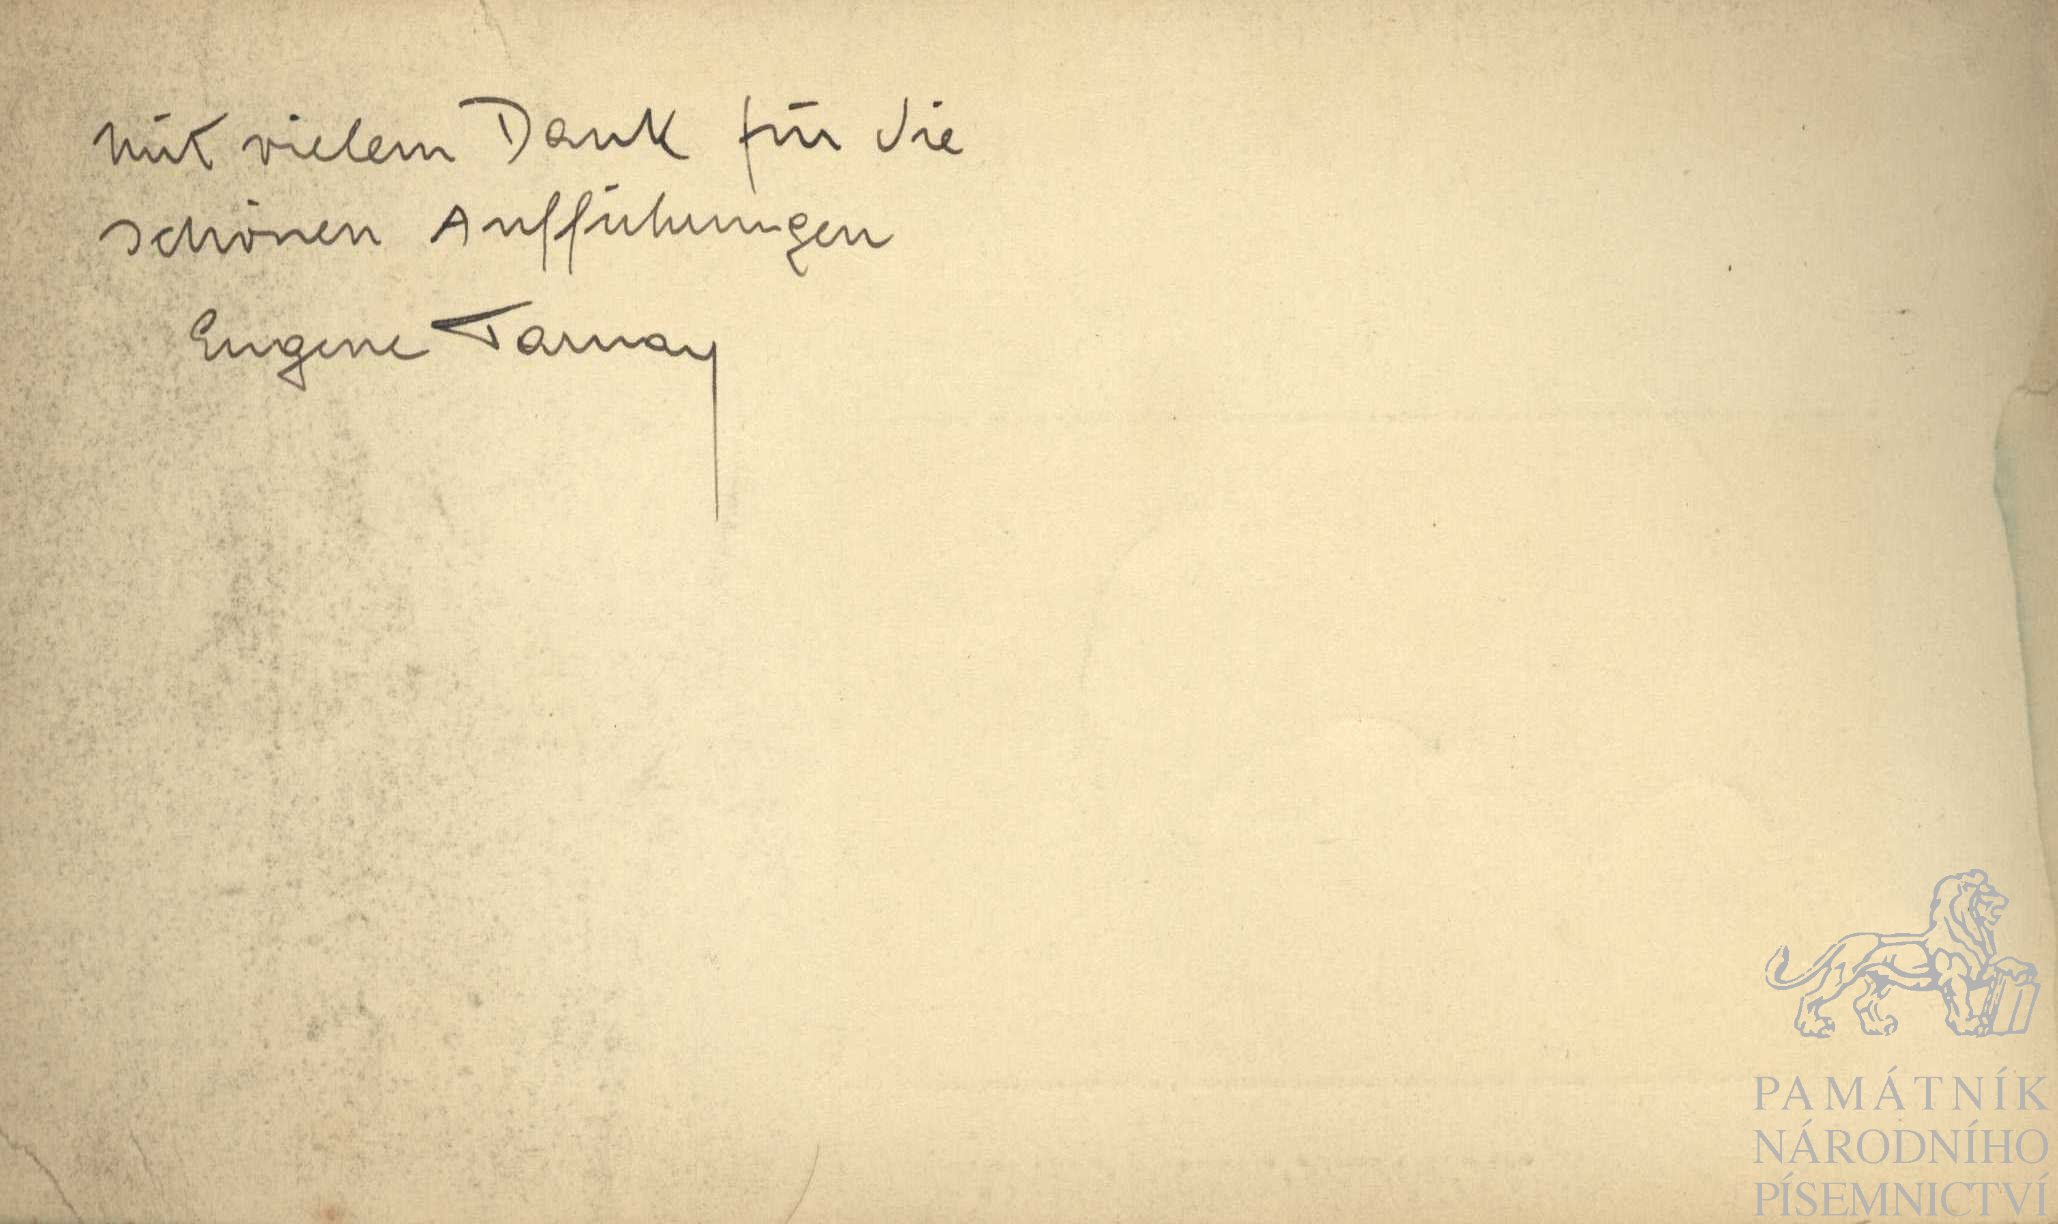 mit vielem Dank für die
schönen Aufführungen
Eugene Tarnay
PAMÁTNÍK
NÁRODNÍHO
PÍSEMNICTVÍ